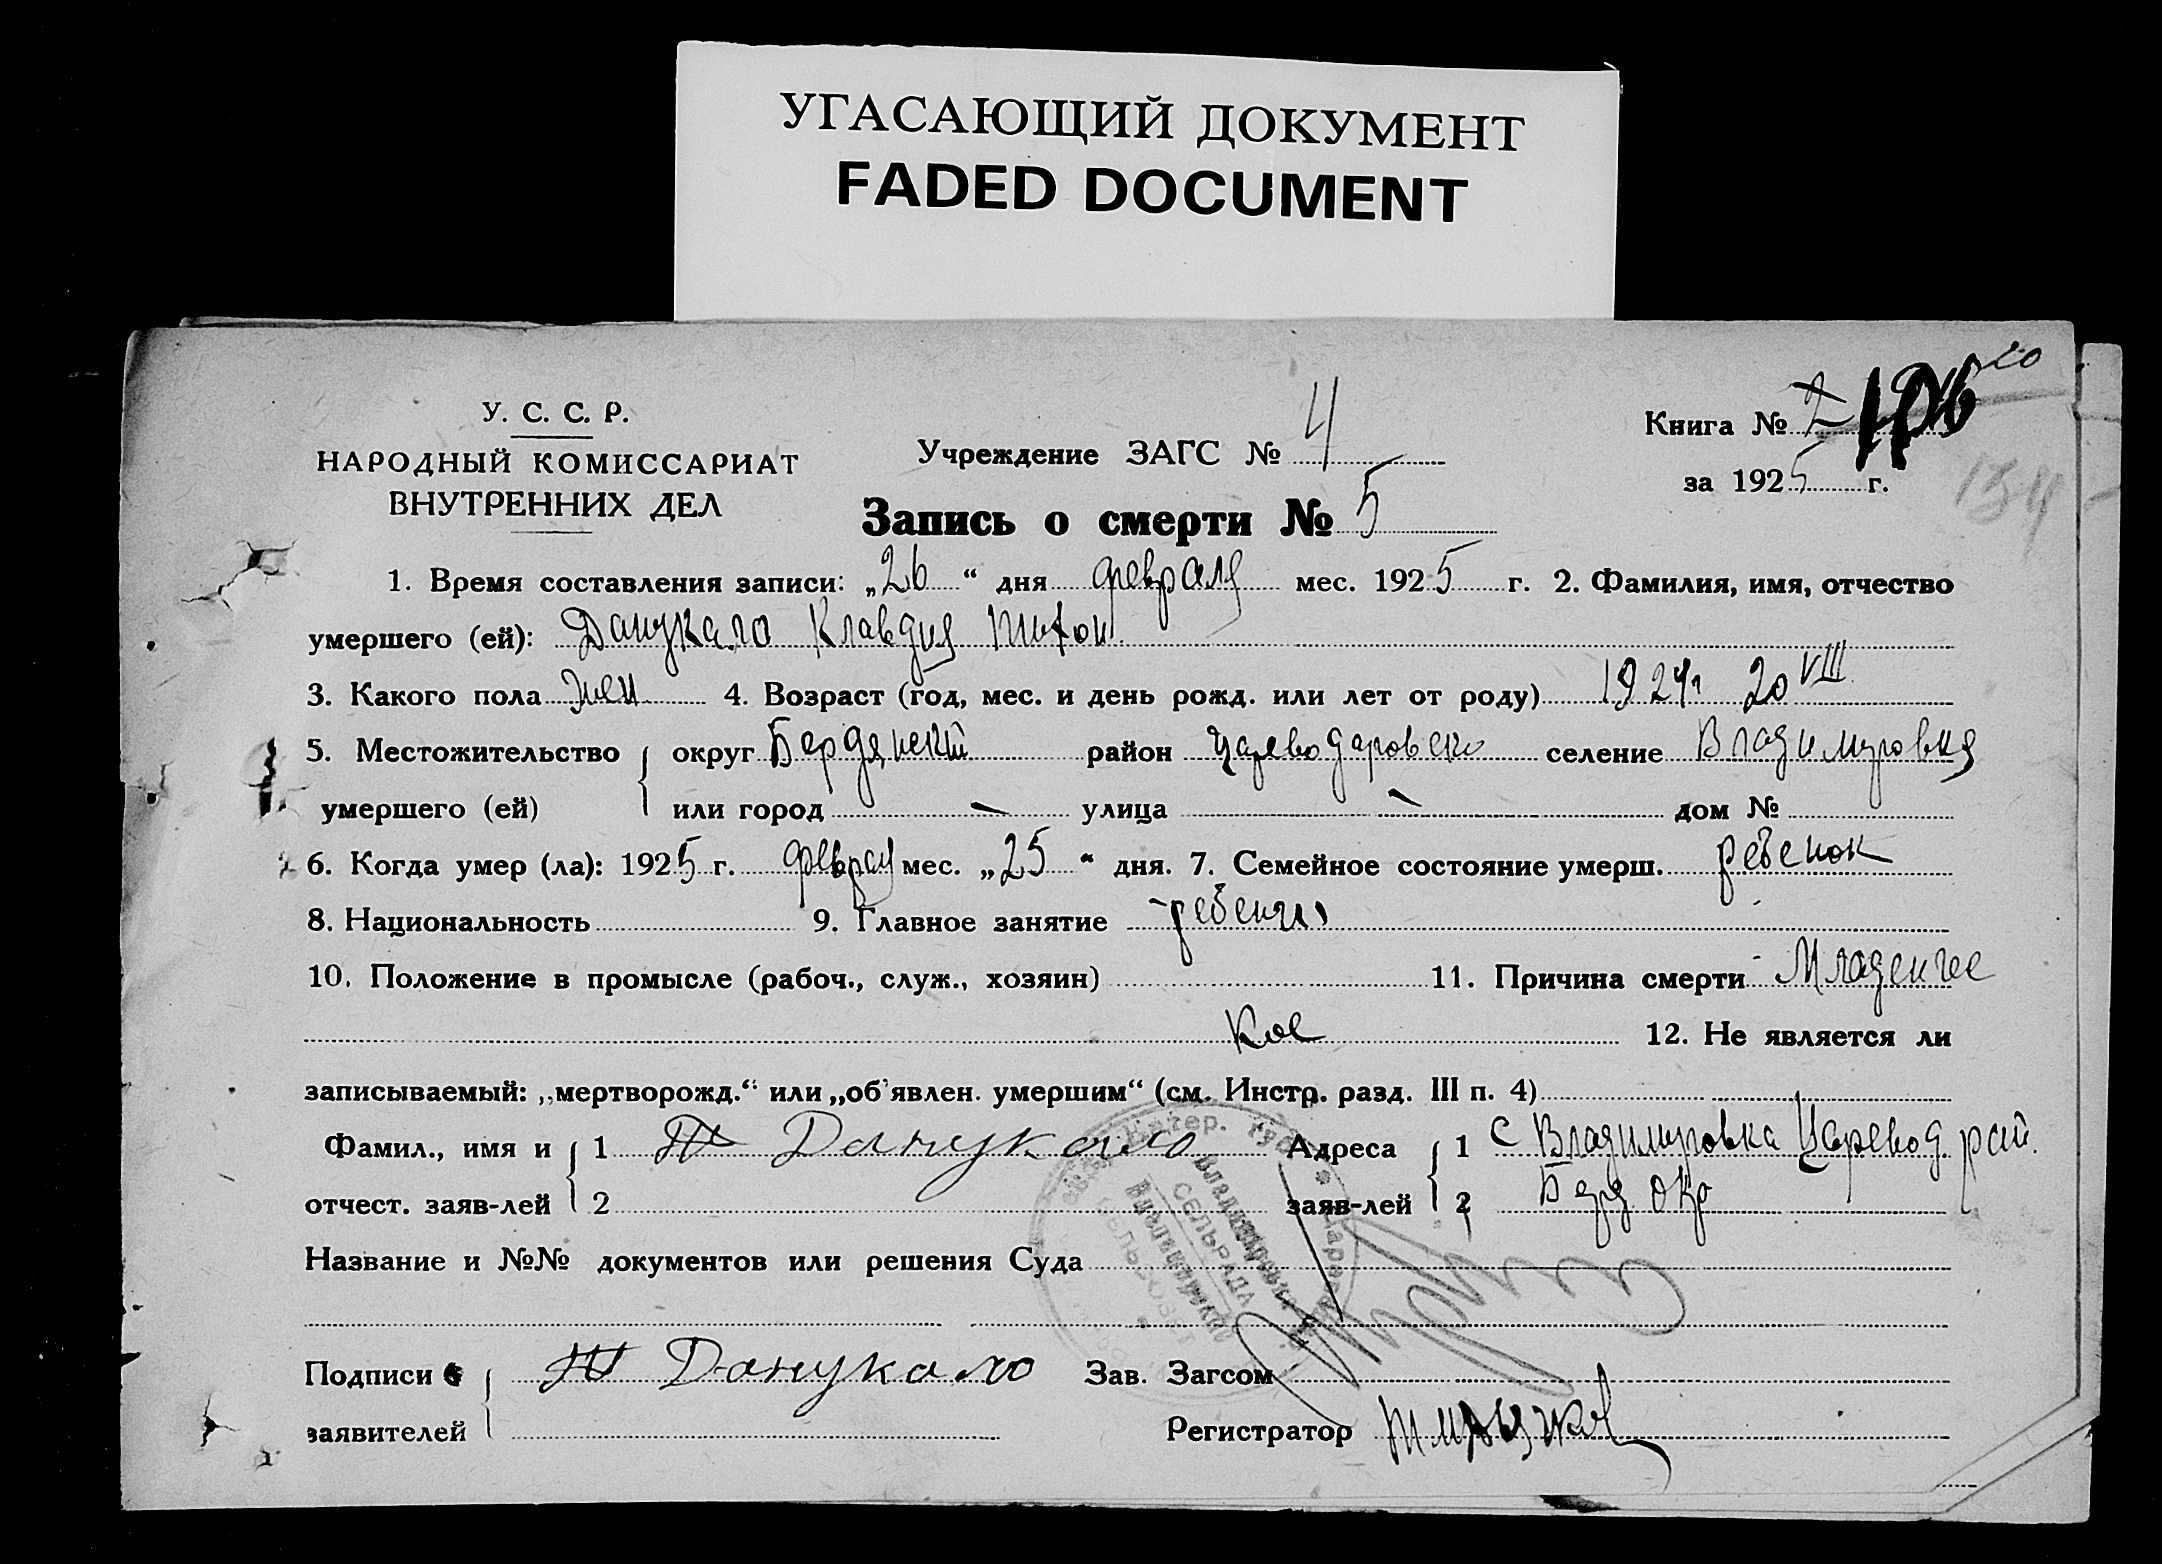 УГАСАЮЩИЙ ДОКУМЕНТ
FADED DOCUMENT
20
У. С. С. Р.
НАРОДНЫЙ КОМИССАРИАТ
ВНУТРЕННИХ ДЕЛ
Учреждение ЗАГС № 4
Книга № 2 106
за 1925 г.
154
Запись о смерти № 5
1. Время составления записи: „26“ дня февраля мес. 1925 г. 2. Фамилия, имя, отчество
умершего (ей): Данукало Клавдия Тихон.
3. Какого пола жен 4. Возраст (год, мес. и день рожд. или лет от роду) 1924 г 20 VIII
5. Местожительство округ Бердянский район Цареводаровск селение Владимировка
умершего (ей) или город — улица — дом №
6. Когда умер (ла): 1925 г. февраля мес. „25“ дня. 7. Семейное состояние умерш. ребенок
8. Национальность 9. Главное занятие ребенок
10. Положение в промысле (рабоч., служ., хозяин) 11. Причина смерти Младенчес
кое 12. Не является ли
записываемый: „мертворожд.“ или „об'явлен. умершим“ (см. Инстр. разд. III п. 4)
Фамил., имя и 1 Т Данукало Адреса 1 с Владимировка Царевод рай.
отчест. заяв-лей 2 заяв-лей 2 Берд окр
Название и №№ документов или решения Суда
Владимировська
СЕЛЬРАДА
СЕЛЬСОВЕТ
Подписи Т Данукало Зав. Загсом
заявителей Регистратор